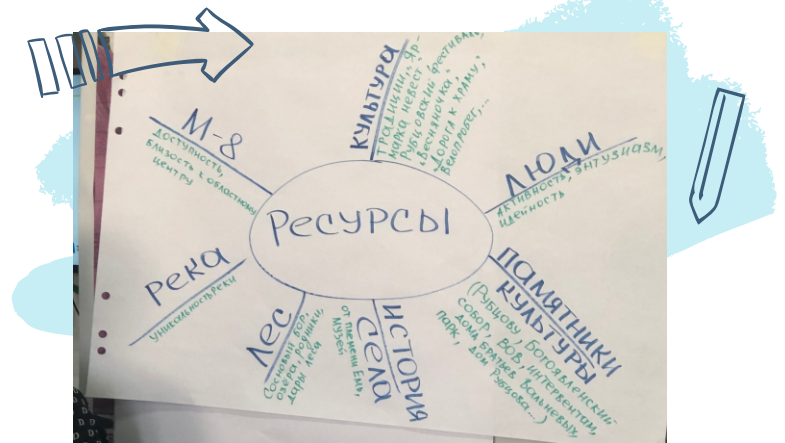 РЕСУРСЫ
М-8
ДОСТУПНОСТЬ,
БЛИЗОСТЬ К ОБЛАСТНОМУ
ЦЕНТРУ
КУЛЬТУРА
ТРАДИЦИИ, "ЯР-
МАРКА НЕВЕСТ",
РУБЦОВСКИЙ ФЕСТИВАЛЬ,
"ВЕСНЯНОЧКА",
"ДОРОГА К ХРАМУ",
ВЕЛОПРОБЕГ,...
ЛЮДИ
АКТИВНОСТЬ, ЭНТУЗИАЗМ,
ИДЕЙНОСТЬ
ПАМЯТНИКИ
КУЛЬТУРЫ
(РУБЦОВУ, БОГОЯВЛЕНСКИЙ
СОБОР, ВОВ, ИНТЕРВЕНТАМ,
ДОМА БРАТЬЕВ ВАЛЬНЕВЫХ,
ПАРК, ДОМ РУБЦОВА...)
ИСТОРИЯ
СЕЛА
ОТ ПЛЕМЕНИ ЕМЬ,
МУЗЕЙ
ЛЕС
СОСНОВЫЙ БОР,
ОЗЁРА, РОДНИКИ,
ДАРЫ ЛЕСА
РЕКА
УНИКАЛЬНОСТЬ РЕКИ